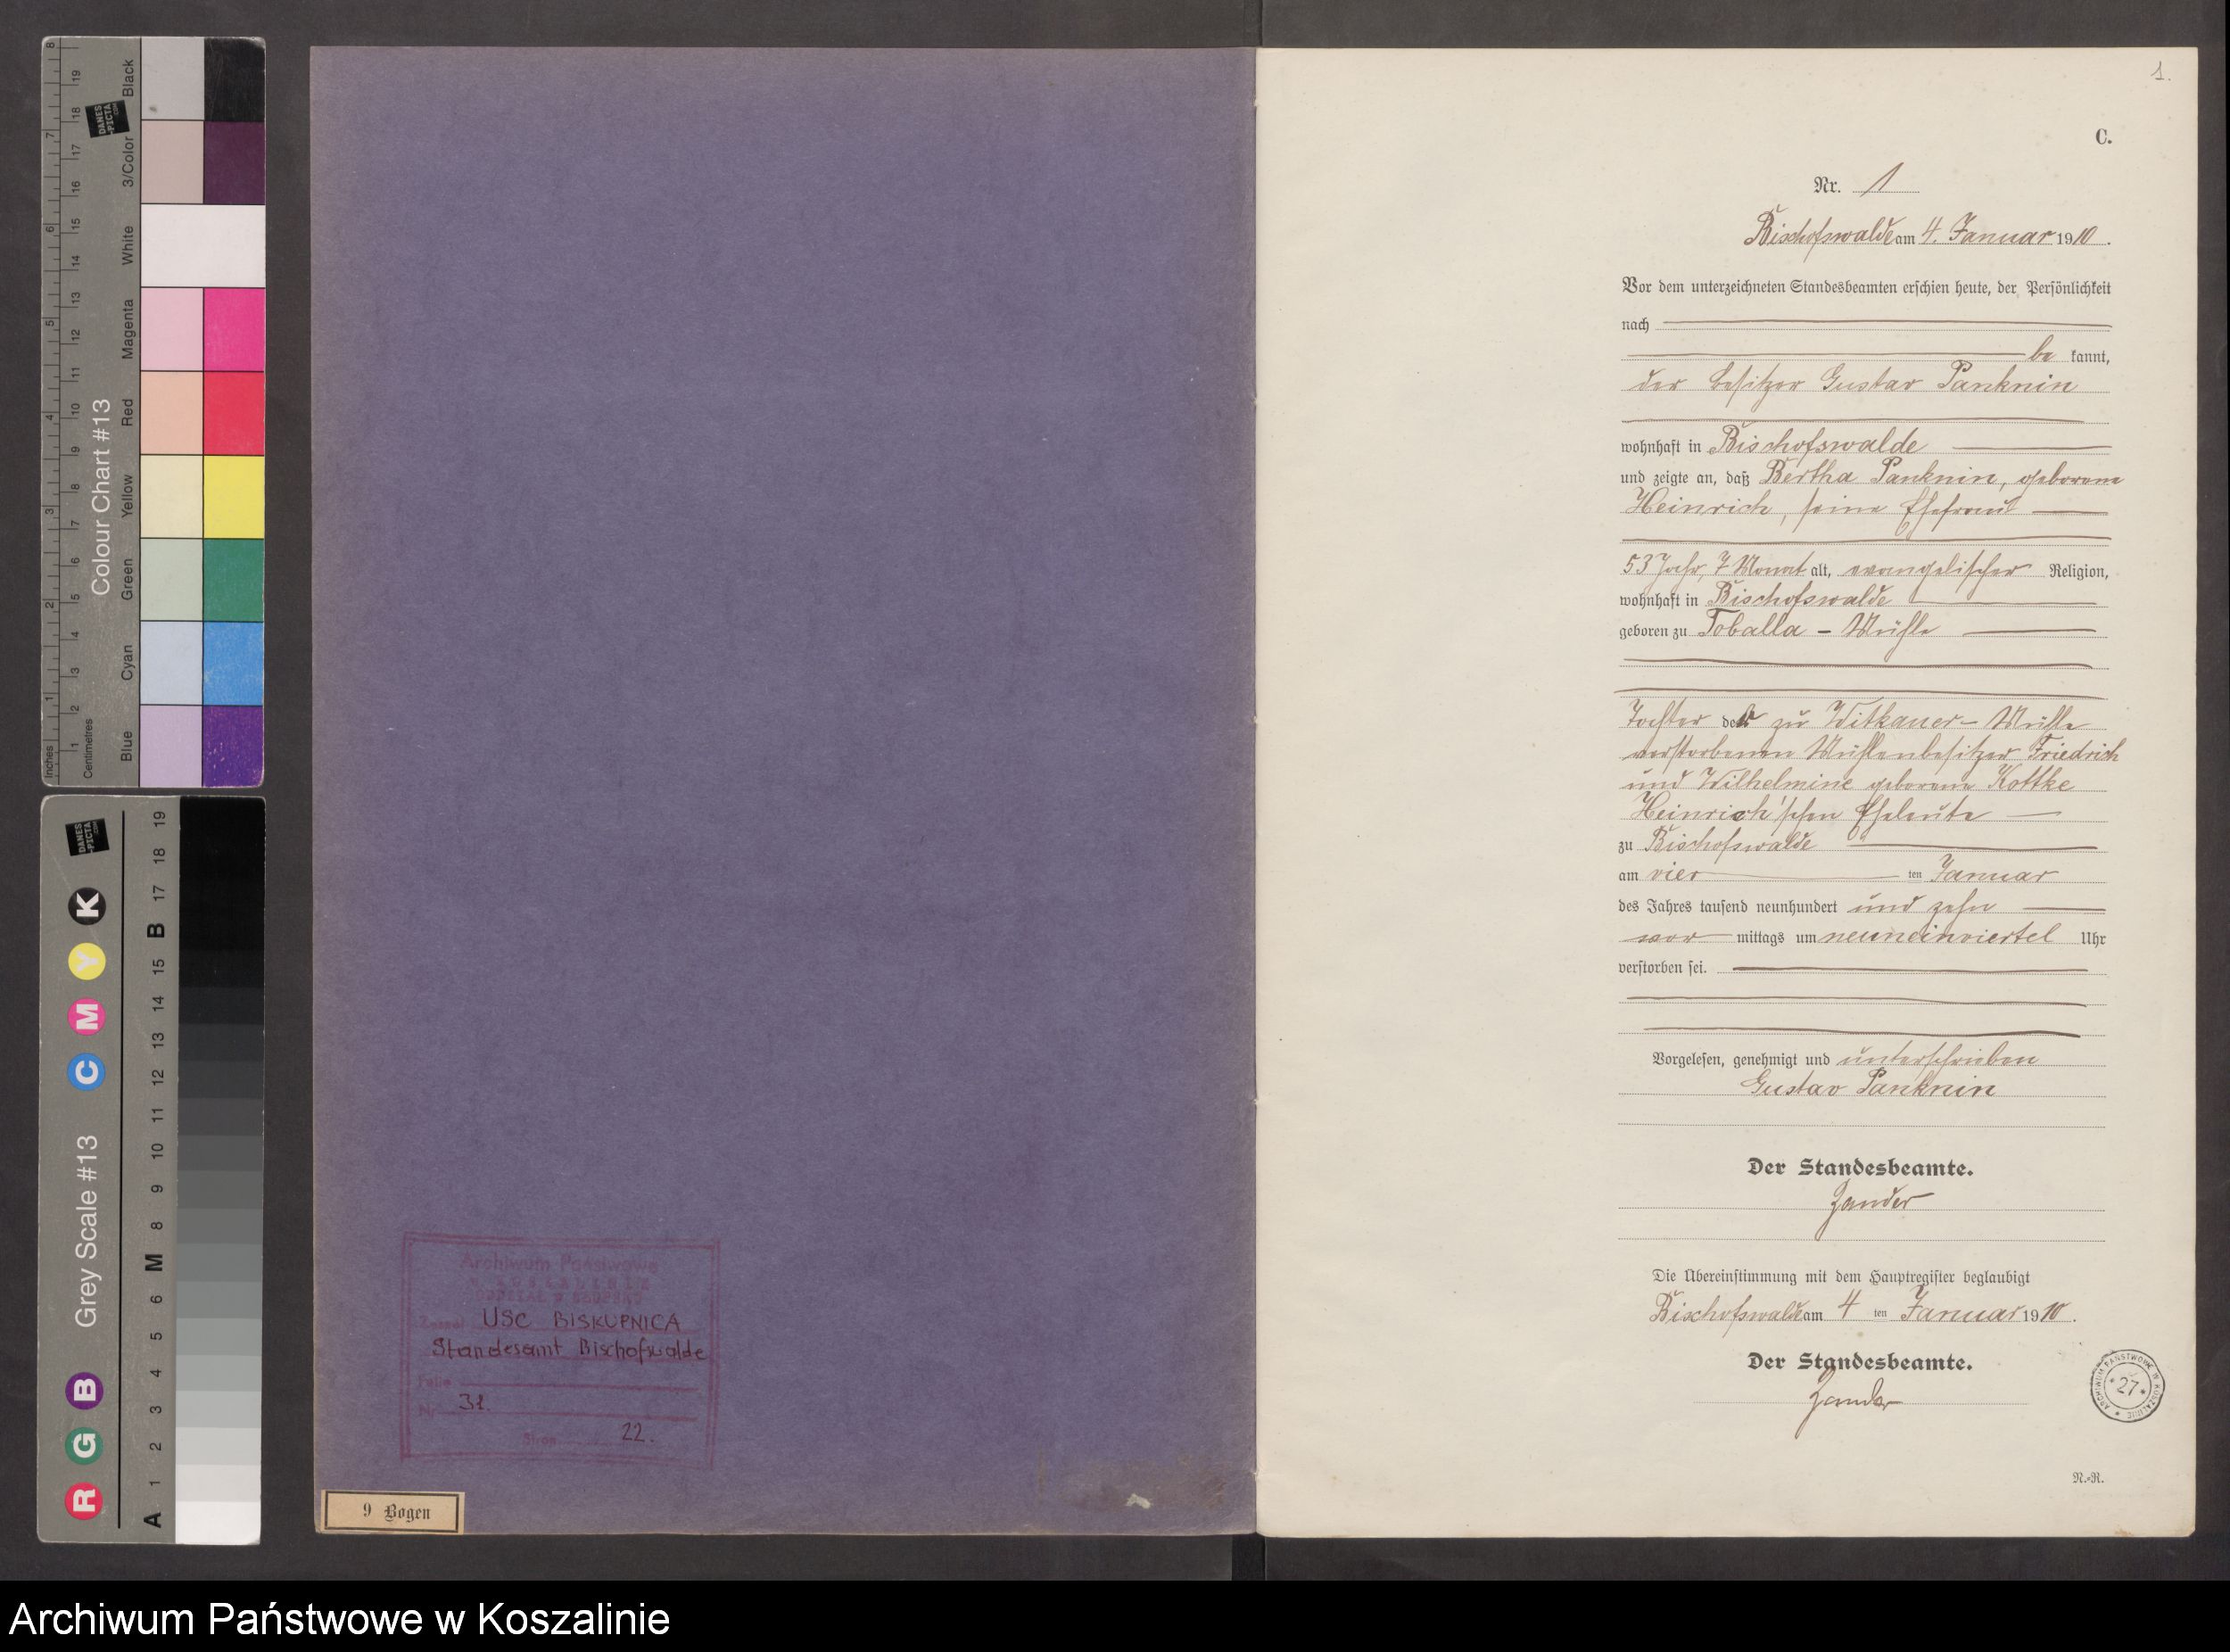 1.
C.
Nr. 1
Bischofswalde am 4. Januar 1910.
Vor dem unterzeichneten Standesbeamten erschien heute, der Persönlichkeit
nach
be kannt,
der Besitzer Gustav Panknin
wohnhaft in Bischofswalde
und zeigte an, daß Bertha Panknin, geborene
Heinrich, seine Ehefrau
53 Jahr, 7 Monat alt, evangelischer Religion,
wohnhaft in Bischofswalde
geboren zu Toballa - Mühle
Tochter der zu Witkauer - Mühle
verstorbenen Mühlenbesitzer Friedrich
und Wilhelmine geborene Kottke
Heinrich'schen Eheleute
zu Bischofswalde
am vier ten Januar
des Jahres tausend neunhundert und zehn
vor mittags um neuneinviertel Uhr
verstorben sei.
Vorgelesen, genehmigt und unterschrieben
Gustav Panknin
Der Standesbeamte.
Zander
Die Übereinstimmung mit dem Hauptregister beglaubigt
Bischofswalde am 4 ten Januar 1910.
Der Standesbeamte.
Zander
ARCHIWUM PAŃSTWOWE W KOSZALINIE
* 27 *
N.-R.
Archiwum Państwowe
w KOSZALINIE
ODDZIAŁ w SŁUPSKU
Zespół USC BISKUPNICA
Standesamt Bischofswalde
Nr 31.
Stron 22.
9 Bogen
Colour Chart #13
Black
3/Color
White
Magenta
Red
Yellow
Green
Cyan
Blue
Inches 1 2 3 4 5 6 7 8
Centimetres 1 2 3 4 5 6 7 8 9 10 11 12 13 14 15 16 17 18 19
DANES
-PICTA
.COM
Grey Scale #13
R G B C M Y K
A 1 2 3 4 5 6 M 8 9 10 11 12 13 14 15 B 17 18 19
DANES
-PICTA
.COM
Archiwum Państwowe w Koszalinie